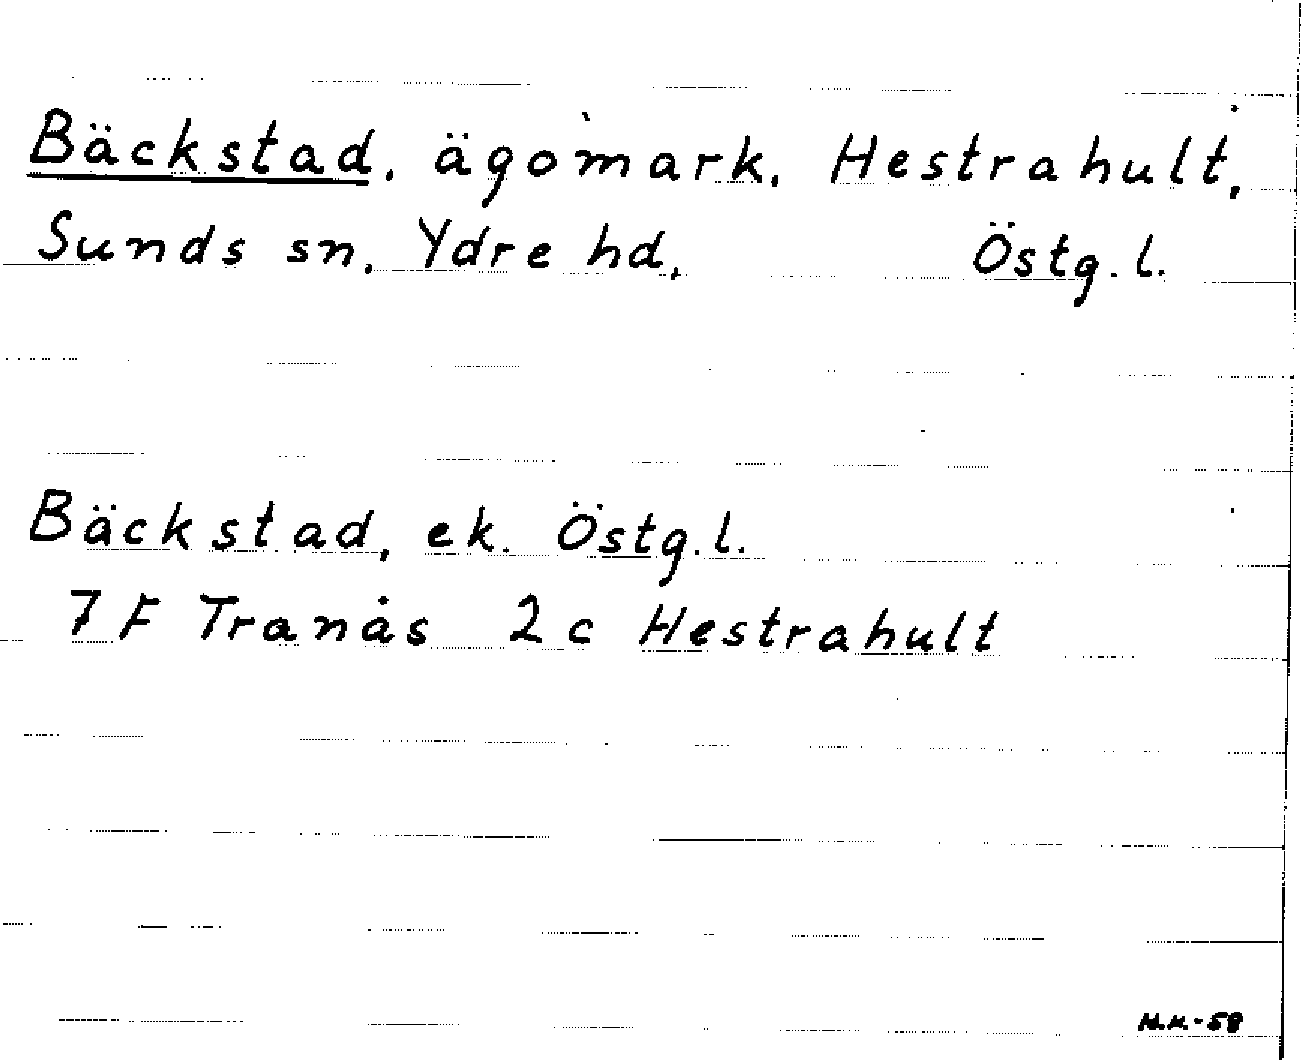 Bäckstad, ägomark, Hestrahult,
Sunds sn, Ydre hd, Östg. l.
Bäckstad, ek. Östg. l.
7 F Tranås 2 c Hestrahult